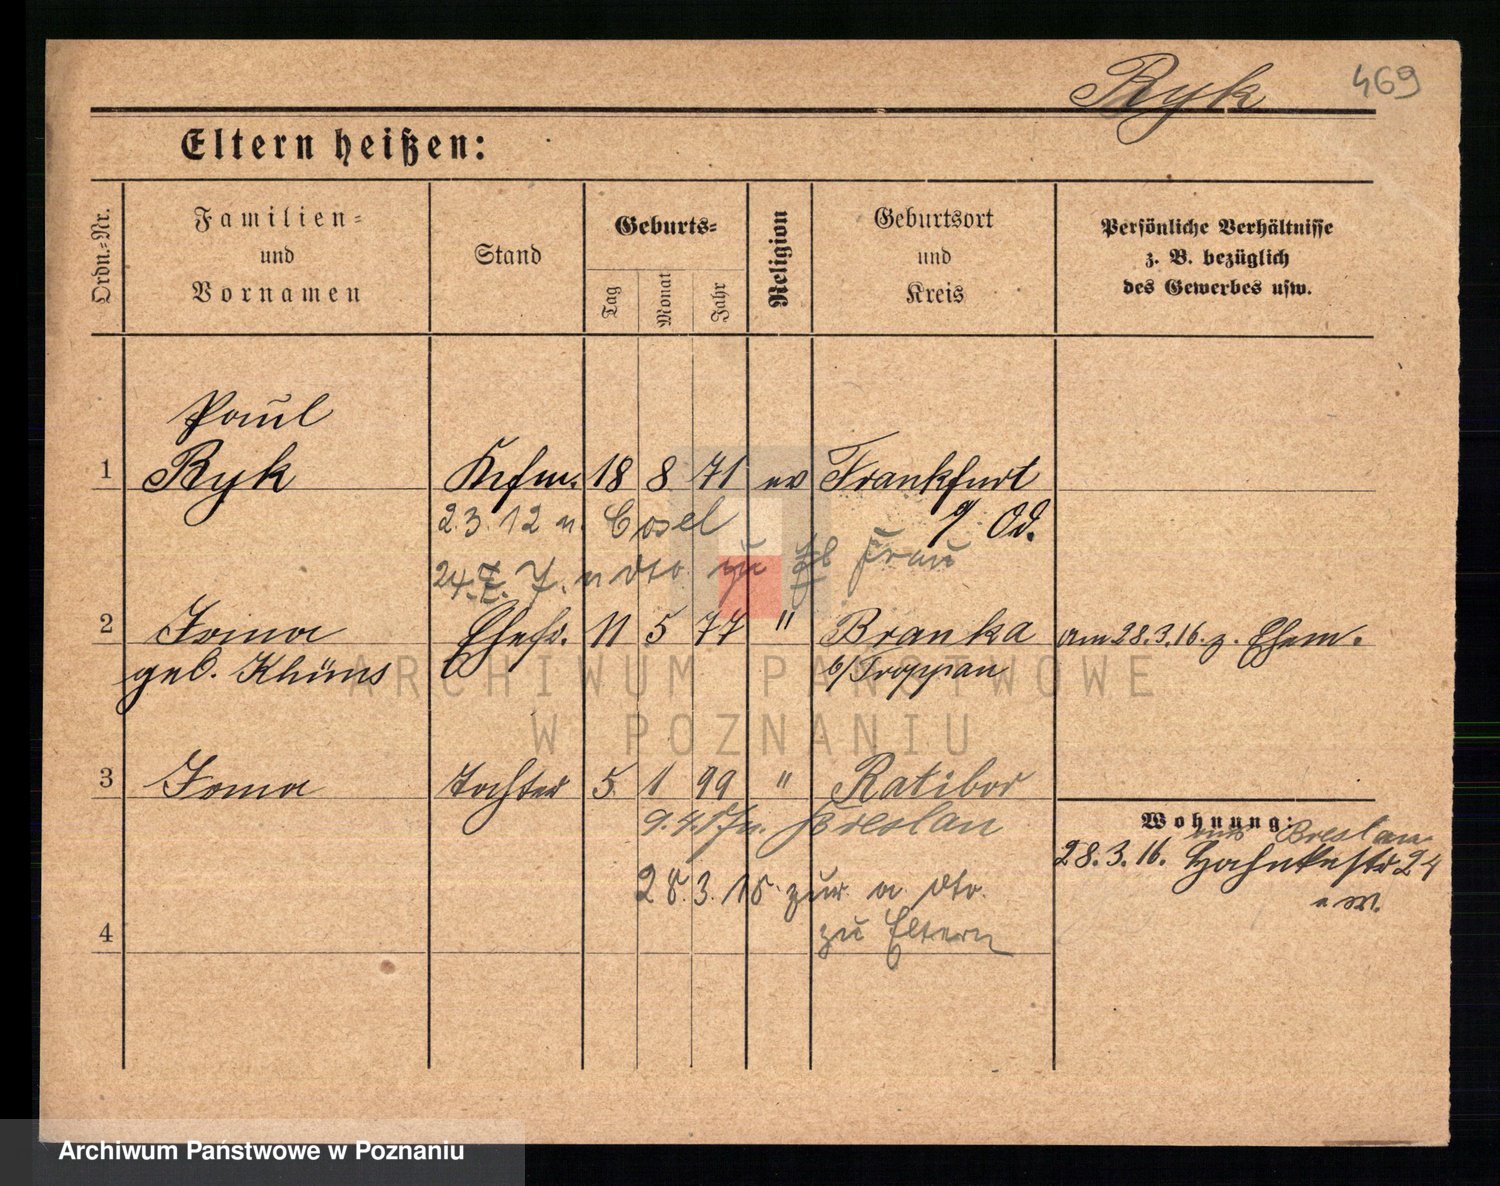 Ryk
469
Eltern heißen:
Ordn.-Nr.
Familien-
und
Vornamen
Stand
Geburts-
Tag
Monat
Jahr
Religion
Geburtsort
und
Kreis
Persönliche Verhältnisse
z. B. bezüglich
des Gewerbes usw.
Paul
1 Ryk Kfm. 18 8 71 ev Frankfurt
a/ Od.
2.3.12 n. Cosel
24.7. n dto zu Frau
2 Irma Ehefr. 11 5 77 " Branka am 28.3.16. z. Ehem.
geb. Khüns b/Troppau
3 Irma Tochter 5 1 99 " Ratibor
9.4.17 n. Breslau
Wohnung:
aus Breslau
28.3.16. 24
28.3.18 zur a dto.
4 zu Eltern
ARCHIWUM PAŃSTWOWE
W POZNANIU
Archiwum Państwowe w Poznaniu